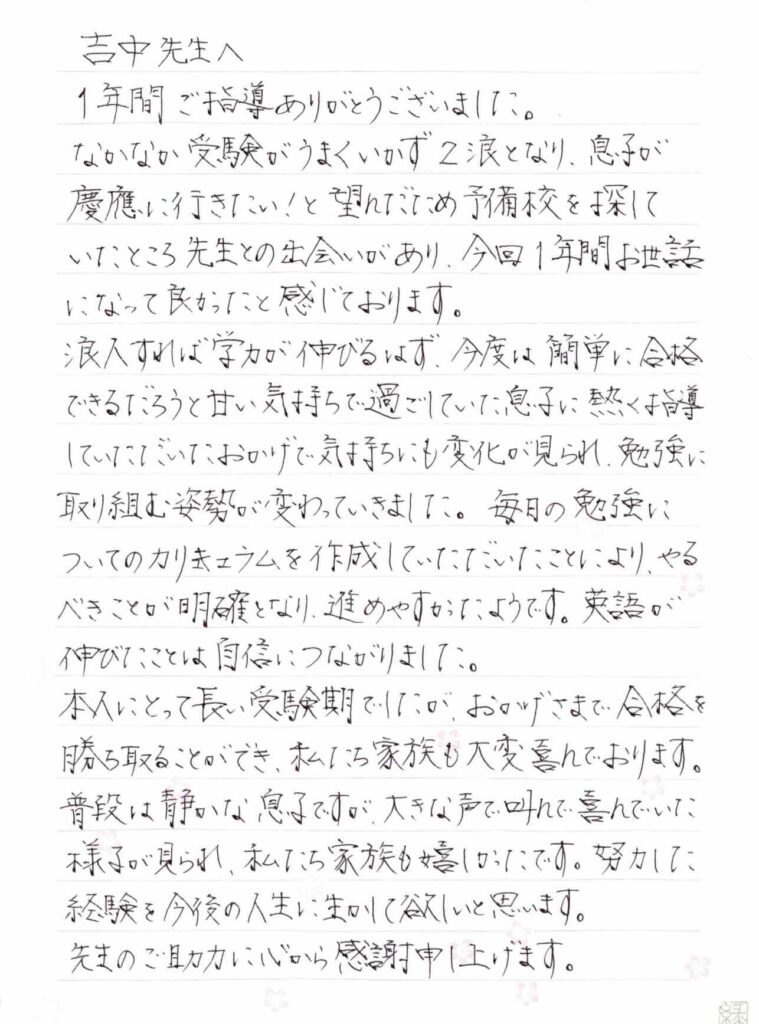 吉中先生へ
1年間ご指導ありがとうございました。
なかなか受験がうまくいかず2浪となり、息子が
慶應に行きたい！と望んだため予備校を探して
いたところ先生との出会いがあり、今回1年間お世話
になって良かったと感じております。
浪人すれば学力が伸びるはず、今度は簡単に合格
できるだろうと甘い気持ちで過ごしていた息子に熱くご指導
していただいたおかげで気持ちにも変化が見られ、勉強に
取り組む姿勢が変わっていきました。毎日の勉強に
ついてのカリキュラムを作成していただいたことにより、やる
べきことが明確となり、進めやすかったようです。英語が
伸びたことは自信につながりました。
本人にとって長い受験期でしたが、おかげさまで合格を
勝ち取ることができ、私たち家族も大変喜んでおります。
普段は静かな息子ですが、大きな声で叫んで喜んでいた
様子が見られ、私たち家族も嬉しかったです。努力した
経験を今後の人生に生かして欲しいと思います。
先生のご助力に心から感謝申し上げます。
縁